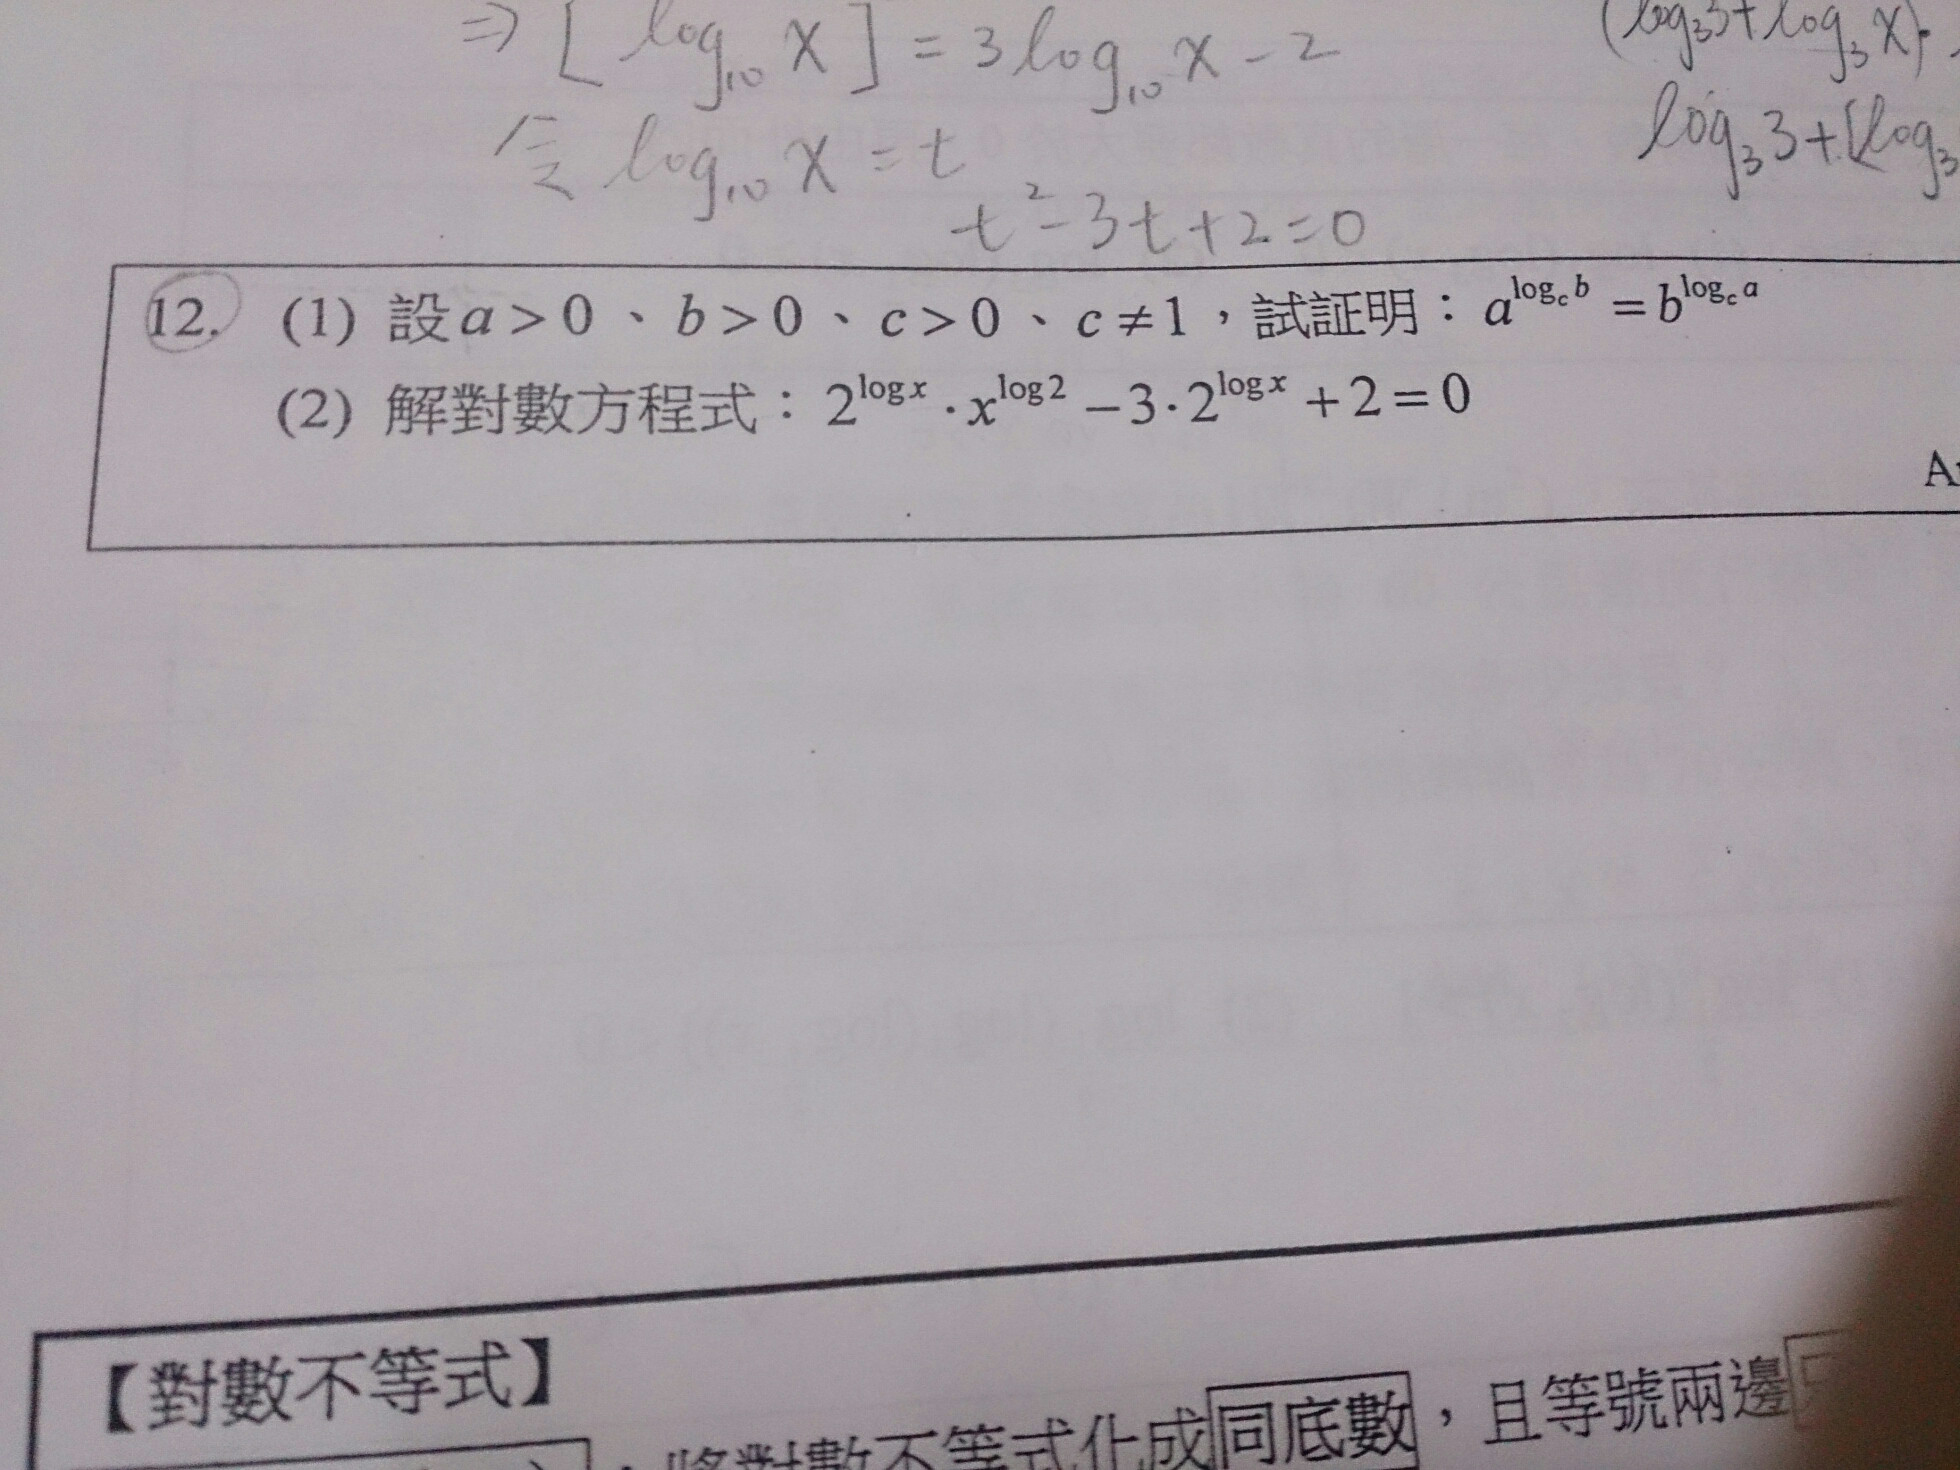 ⇒ [log₁₀ x] = 3 log₁₀ x − 2
令 log₁₀ x = t
t² − 3t + 2 = 0
(log₃3 + log₃x)·
log₃3 + [log₃
12. (1) 設 a > 0、b > 0、c > 0、c ≠ 1，試証明：a^{log_c b} = b^{log_c a}
(2) 解對數方程式：2^{log x} · x^{log 2} − 3 · 2^{log x} + 2 = 0
【對數不等式】
，將對數不等式化成同底數，且等號兩邊